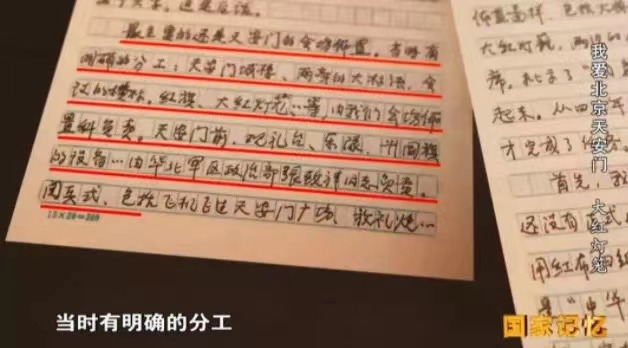 最主要的还是天安门的会场佈置。当时有
明确的分工：天安门城楼、两旁的大标语、会
议的横标、红旗、大红灯笼…等，由我们会场佈
置科负责。天安门前、观礼台、乐队、升国旗
的设备…由华北军区政治部张致祥同志负责。
阅兵式、包括飞机飞过天安门广场、放礼炮…
15×20=300
大红灯笼，两边的
起来。从四
才完成了任务。
首先，我
还没有正式
用红布
是“中华
我爱北京天安门 大红灯笼
当时有明确的分工
国家记忆